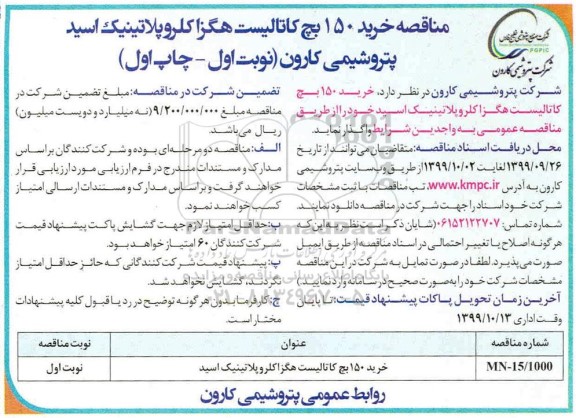 مناقصه خرید ۱۵۰ بچ کاتالیست هگزا کلرو پلاتینیک اسید
پتروشیمی کارون (نوبت اول - چاپ اول)
PGPIC
شرکت پتروشیمی کارون
شرکت پتروشیمی کارون در نظر دارد، خرید ۱۵۰ بچ
کاتالیست هگزا کلرو پلاتینیک اسید خود را از طریق
مناقصه عمومی به واجدین شرایط واگذار نماید.
محل دریافت اسناد مناقصه: متقاضیان می‌توانند از تاریخ
۱۳۹۹/۰۹/۲۶ لغایت ۱۳۹۹/۱۰/۰۲ از طریق وب سایت پتروشیمی
کارون به آدرس www.kmpc.ir، تب مناقصات با ثبت مشخصات
شرکت خود اسناد را جهت شرکت در مناقصه دانلود نمایند.
شماره تماس: ۰۶۱۵۲۱۲۲۷۰۷ (شایان ذکر است نظر به این که
هرگونه اصلاح یا تغییر احتمالی در اسناد مناقصه از طریق ایمیل
صورت می‌پذیرد. لطفا در صورت تمایل به شرکت در این مناقصه
مشخصات شرکت خود را به صورت صحیح در سامانه وارد نمایید)
آخرین زمان تحویل پاکات پیشنهاد قیمت: تا پایان
وقت اداری ۱۳۹۹/۱۰/۱۳
تضمین شرکت در مناقصه: مبلغ تضمین شرکت در
مناقصه مبلغ ۹/۲۰۰/۰۰۰/۰۰۰ (نه میلیارد و دویست میلیون)
ریال می‌باشد.
الف: مناقصه دو مرحله‌ای بوده و شرکت کنندگان بر اساس
مدارک و مستندات مندرج در فرم ارزیابی مورد ارزیابی قرار
خواهند گرفت و بر اساس مدارک و مستندات ارسالی امتیاز
کسب خواهند نمود.
ب: حداقل امتیاز لازم جهت گشایش پاکت پیشنهاد قیمت
شرکت کنندگان ۶۰ امتیاز خواهد بود.
پ: پیشنهاد قیمت شرکت کنندگانی که حائز حداقل امتیاز
نگردند، گشایش نخواهد شد.
ج: کارفرما بدون هرگونه توضیح در رد یا قبول کلیه پیشنهادات
مختار است.
شماره مناقصه عنوان نوبت مناقصه
MN-15/1000 خرید ۱۵۰ بچ کاتالیست هگزا کلرو پلاتینیک اسید نوبت اول
روابط عمومی پتروشیمی کارون
ParsNamadData
پایگاه اطلاع رسانی مناقصه و مزایده